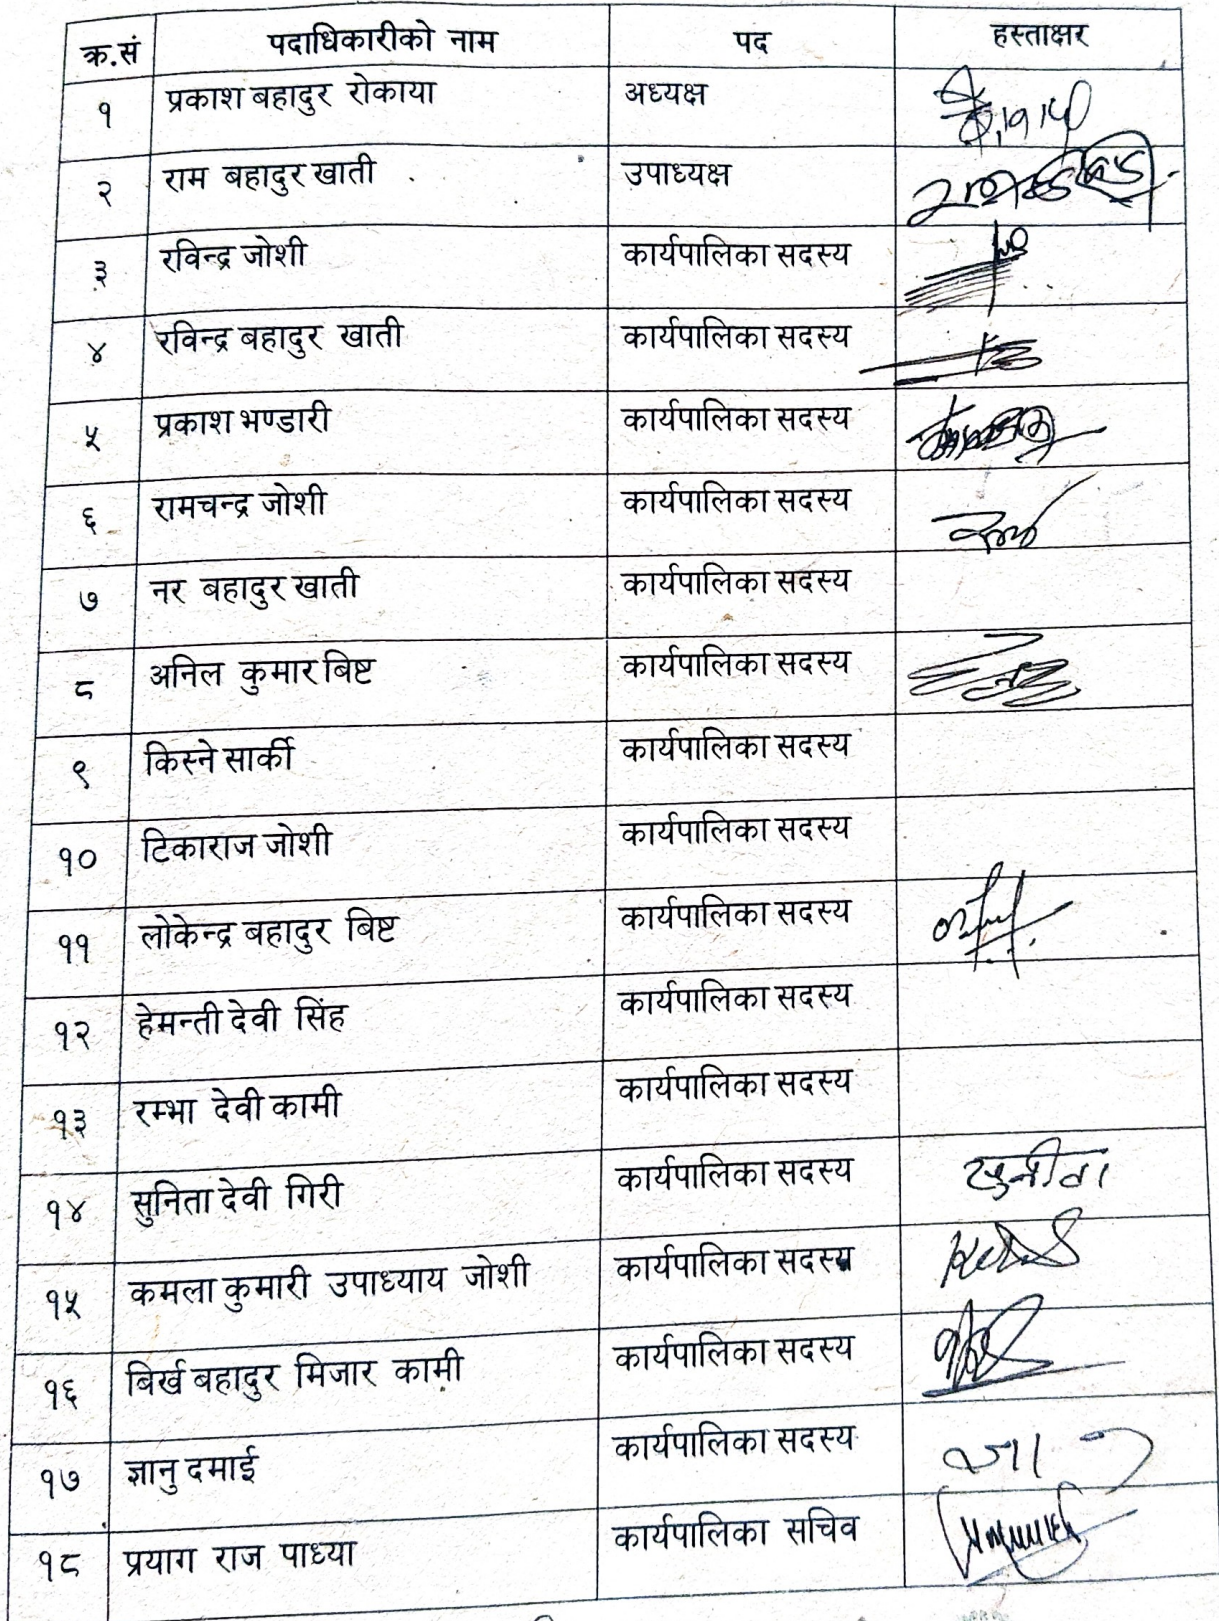 क्र.सं पदाधिकारीको नाम पद हस्ताक्षर
१ प्रकाश बहादुर रोकाया अध्यक्ष
२ राम बहादुर खाती उपाध्यक्ष
३ रविन्द्र जोशी कार्यपालिका सदस्य
४ रविन्द्र बहादुर खाती कार्यपालिका सदस्य
५ प्रकाश भण्डारी कार्यपालिका सदस्य
६ रामचन्द्र जोशी कार्यपालिका सदस्य
७ नर बहादुर खाती कार्यपालिका सदस्य
८ अनिल कुमार बिष्ट कार्यपालिका सदस्य
९ किस्ने सार्की कार्यपालिका सदस्य
१० टिकाराज जोशी कार्यपालिका सदस्य
११ लोकेन्द्र बहादुर बिष्ट कार्यपालिका सदस्य
१२ हेमन्ती देवी सिंह कार्यपालिका सदस्य
१३ रम्भा देवी कामी कार्यपालिका सदस्य
१४ सुनिता देवी गिरी कार्यपालिका सदस्य सुनीता
१५ कमला कुमारी उपाध्याय जोशी कार्यपालिका सदस्य
१६ बिर्ख बहादुर मिजार कामी कार्यपालिका सदस्य
१७ ज्ञानु दमाई कार्यपालिका सदस्य
१८ प्रयाग राज पाध्या कार्यपालिका सचिव